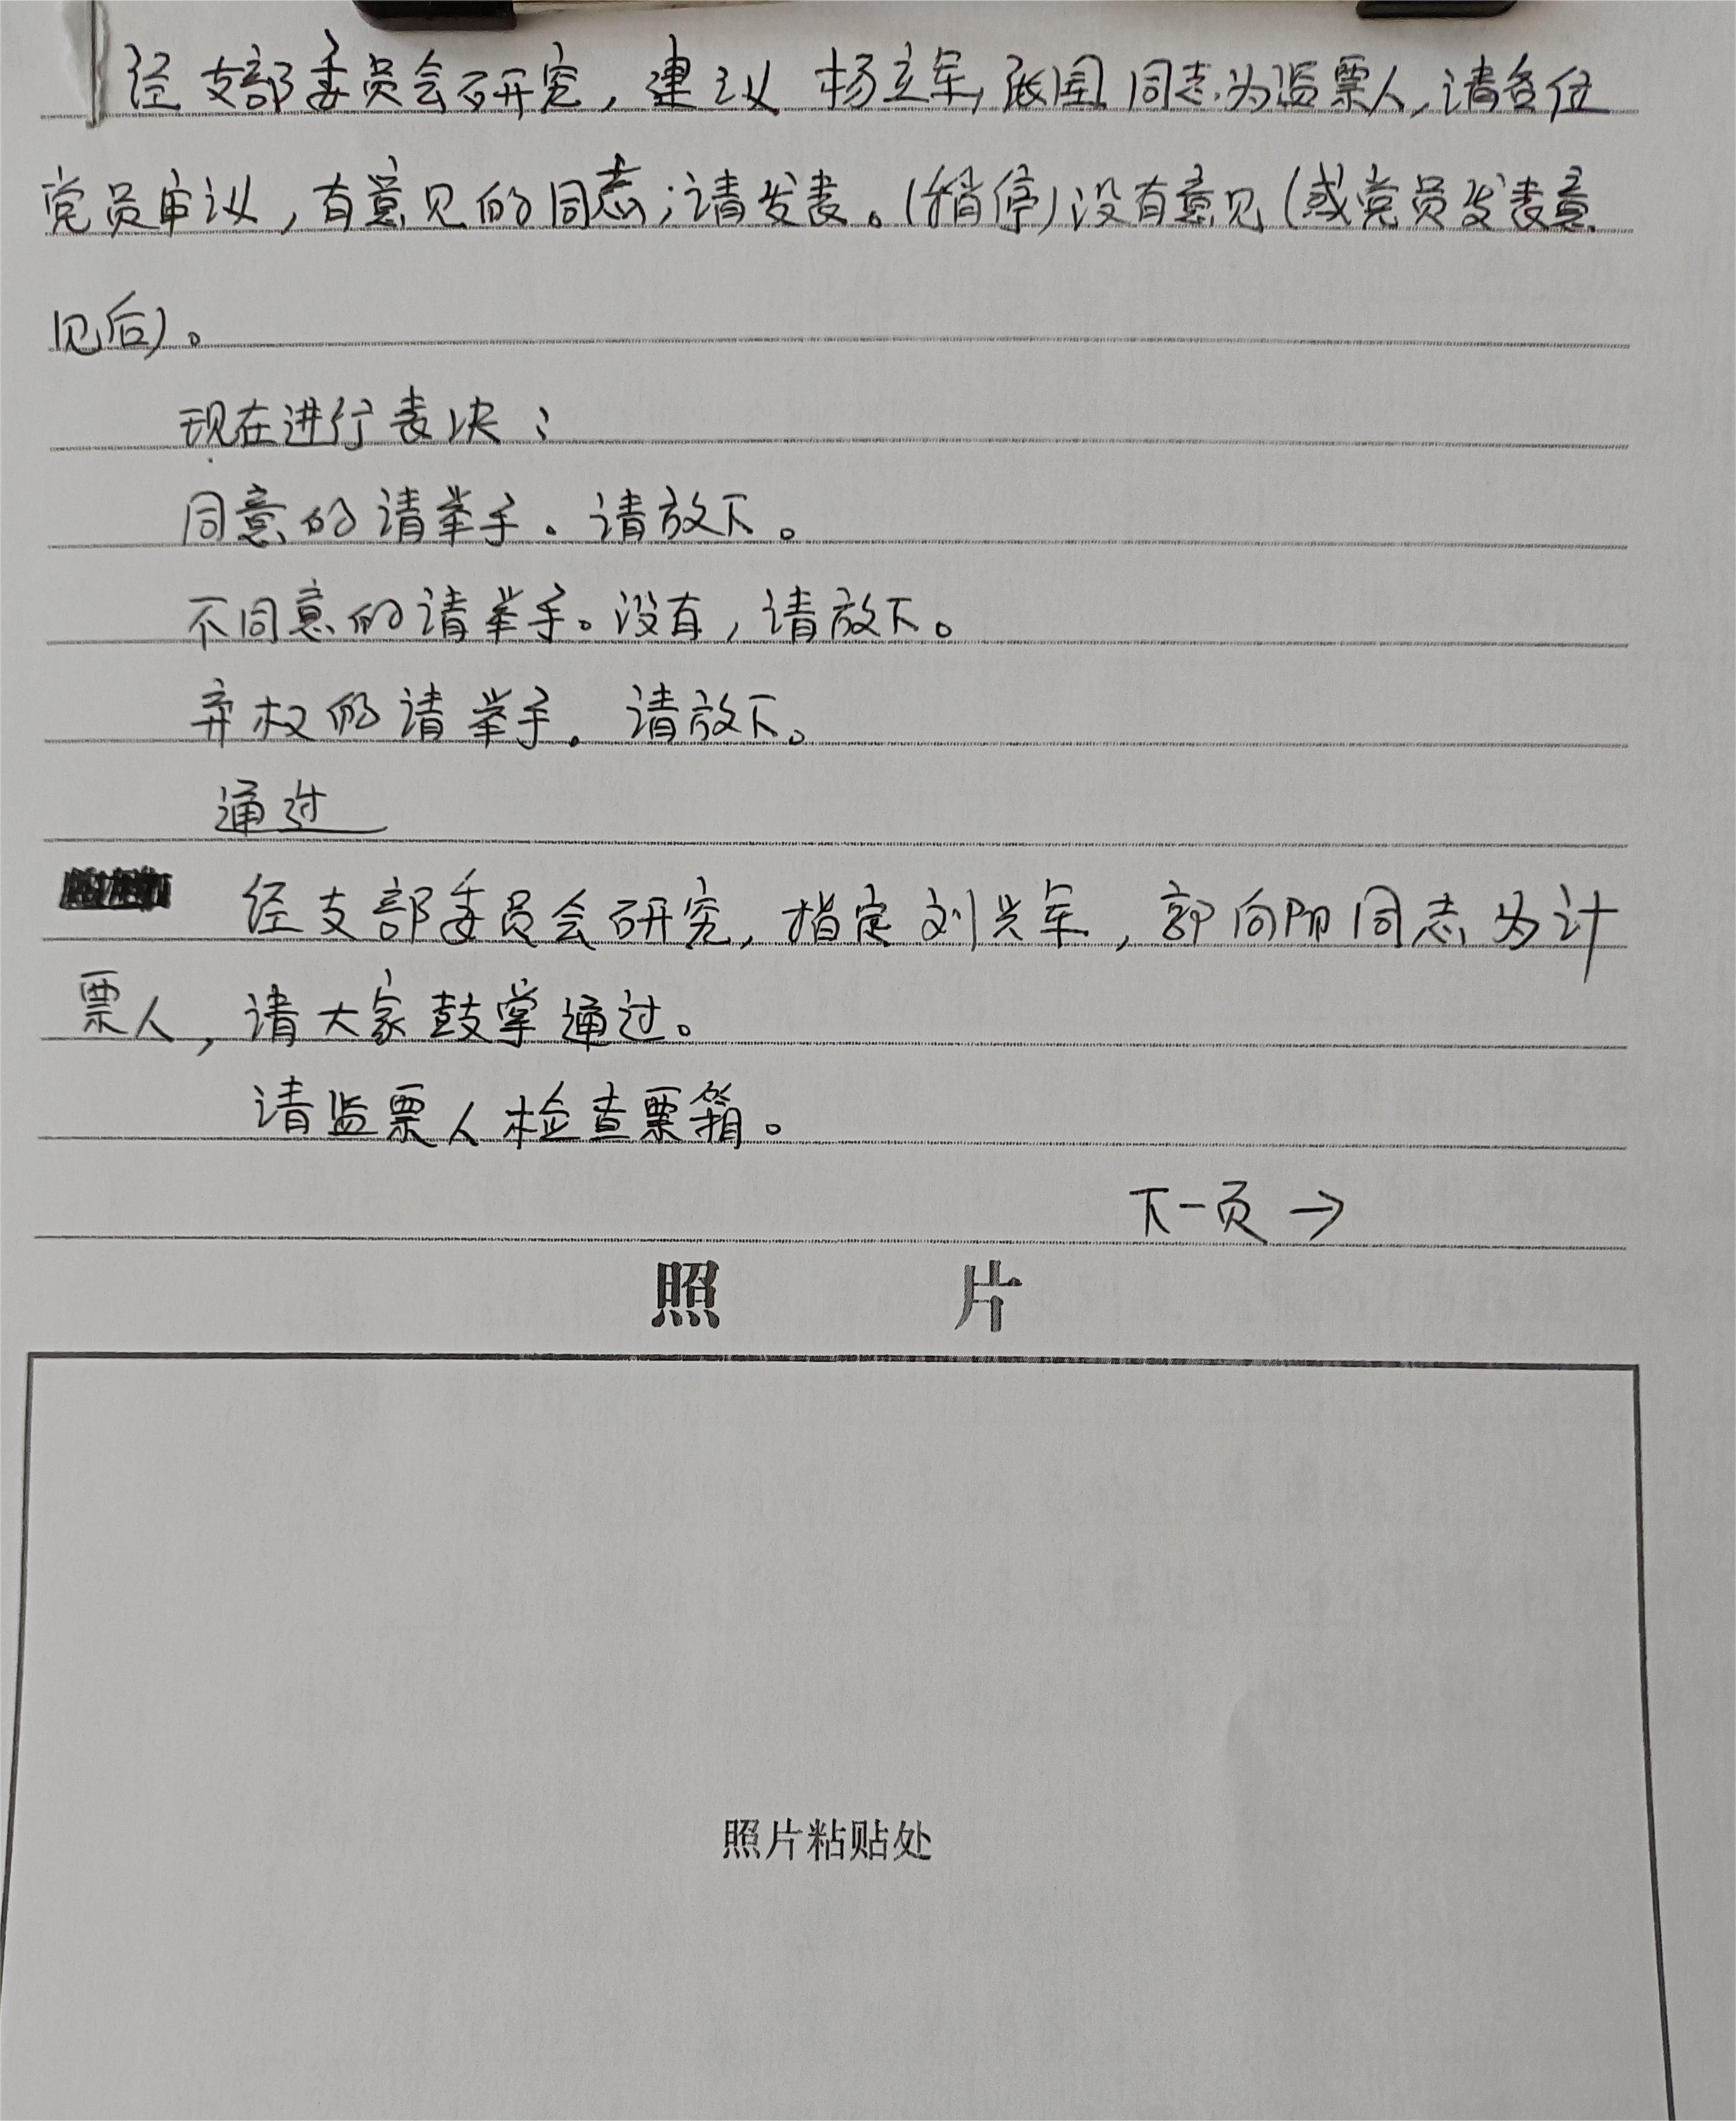 经支部委员会研究，建议 杨立军，张国 同志为监票人，请各位
党员审议，有意见的同志；请发表。（稍停）没有意见（或党员发表意
见后）。
现在进行表决：
同意的请举手。请放下。
不同意的请举手。没有，请放下。
弃权的请举手。请放下。
通过
经支部委员会研究，指定刘兴军，郭向阳同志为计
票人，请大家鼓掌通过。
请监票人检查票箱。
下一页 →
照 片
照片粘贴处